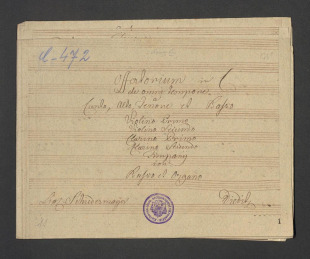 A-472
Offertorium in C
de omni tempore
à
Canto, Alto, Tenore et Basso
Violino Primo
Violino Secundo
Clarino Primo
Clarino Secundo
Tympany
con
Basso et Organo
Schiedermayr
1